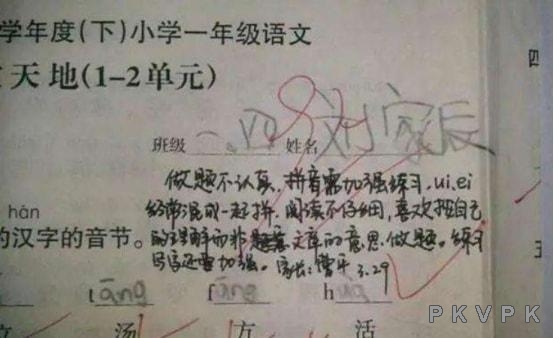 学年度(下)小学一年级语文
四
天地(1-2单元)
班级 一。四 姓名 刘家辰
做题不认真,拼音需加强练习,ui.ei
经常混成一起拼,阅读不仔细,喜欢按自己
hàn
的理解而非文库的意思做题。练习
的汉字的音节。
写字还需加强。家长:曾平 3.29
tāng fāng h
汤 方 活
PKVPK